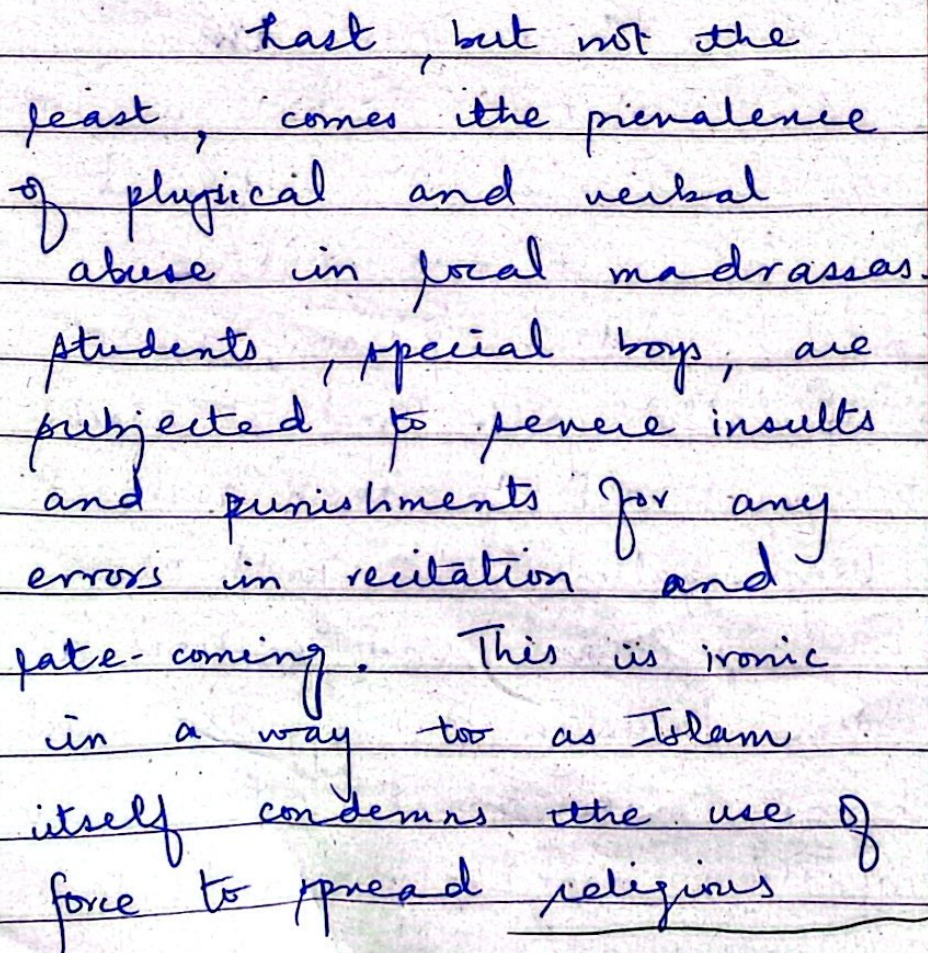 Last, but not the
least, comes the prevalence
of physical and verbal
abuse in local madrassas.
Students, special boys, are
subjected to severe insults
and punishments for any
errors in recitation and
late-coming. This is ironic
in a way too as Islam
itself condemns the use of
force to spread religious